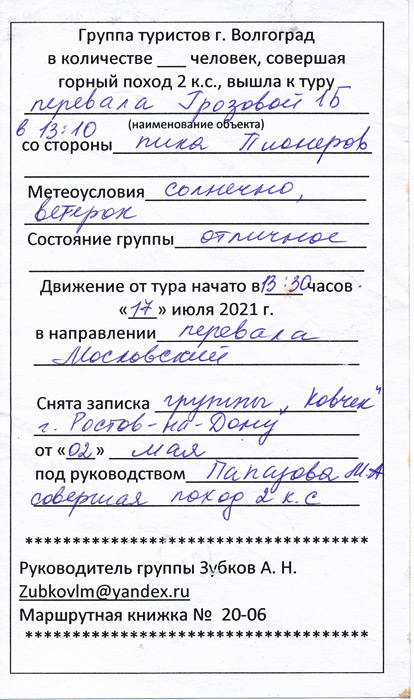 Группа туристов г. Волгоград
в количестве ___ человек, совершая
горный поход 2 к.с., вышла к туру
перевала Грозовой 1Б
в 13:10 (наименование объекта)
со стороны пика Пионеров
Метеоусловия солнечно,
ветерок
Состояние группы отличное
Движение от тура начато в 13:30 часов
«17» июля 2021 г.
в направлении перевала
Московский
Снята записка группы „Ковчег"
г. Ростов-на-Дону
от «02» мая
под руководством Папазова М.А
совершая поход 2 к.с
**************************************
Руководитель группы Зубков А. Н.
Zubkovlm@yandex.ru
Маршрутная книжка № 20-06
**************************************